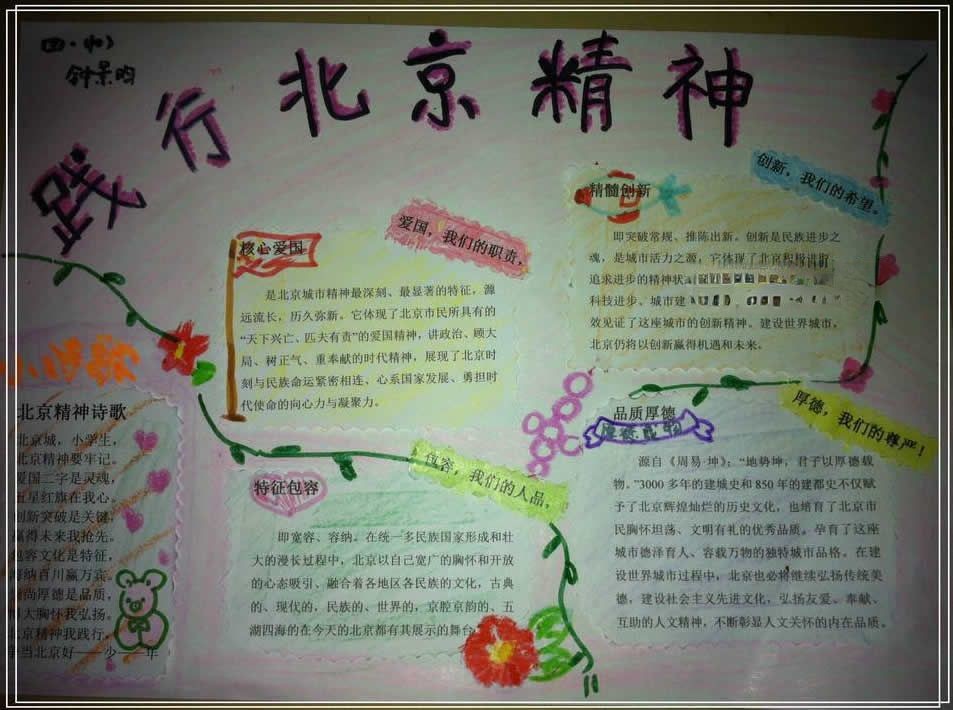 四·(1)
钟景昀
践行北京精神
核心爱国
爱国，我们的职责，
是北京城市精神最深刻、最显著的特征，源
远流长，历久弥新。它体现了北京市民所具有的
“天下兴亡、匹夫有责”的爱国精神，讲政治、顾大
局、树正气、重奉献的时代精神，展现了北京时
刻与民族命运紧密相连、心系国家发展、勇担时
代使命的向心力与凝聚力。
精髓创新
创新，我们的希望。
即突破常规、推陈出新。创新是民族进步之
魂，是城市活力之源，它体现了北京积极进取
追求进步的精神状
科技进步、城市建
效见证了这座城市的创新精神。建设世界城市，
北京仍将以创新赢得机遇和未来。
北京精神诗歌
北京城，小学生，
北京精神要牢记。
爱国二字是灵魂，
五星红旗在我心。
创新突破是关键，
赢得未来我抢先。
包容文化是特征，
海纳百川赢万宾。
尚厚德是品质，
大胸怀我弘扬。
北京精神我践行，
争当北京好——少——年
特征包容
包容，我们的人品，
即宽容、容纳。在统一多民族国家形成和壮
大的漫长过程中，北京以自己宽广的胸怀和开放
的心态吸引、融合着各地区各民族的文化，古典
的、现代的，民族的、世界的，京腔京韵的、五
湖四海的在今天的北京都有其展示的舞台
品质厚德
厚德，我们的尊严！
源自《周易·坤》：“地势坤，君子以厚德载
物。”3000 多年的建城史和 850 年的建都史不仅赋
予了北京辉煌灿烂的历史文化，也培育了北京市
民胸怀坦荡、文明有礼的优秀品质。孕育了这座
城市德泽育人、容载万物的独特城市品格。在建
设世界城市过程中，北京也必将继续弘扬传统美
德，建设社会主义先进文化，弘扬友爱、奉献、
互助的人文精神，不断彰显人文关怀的内在品质。